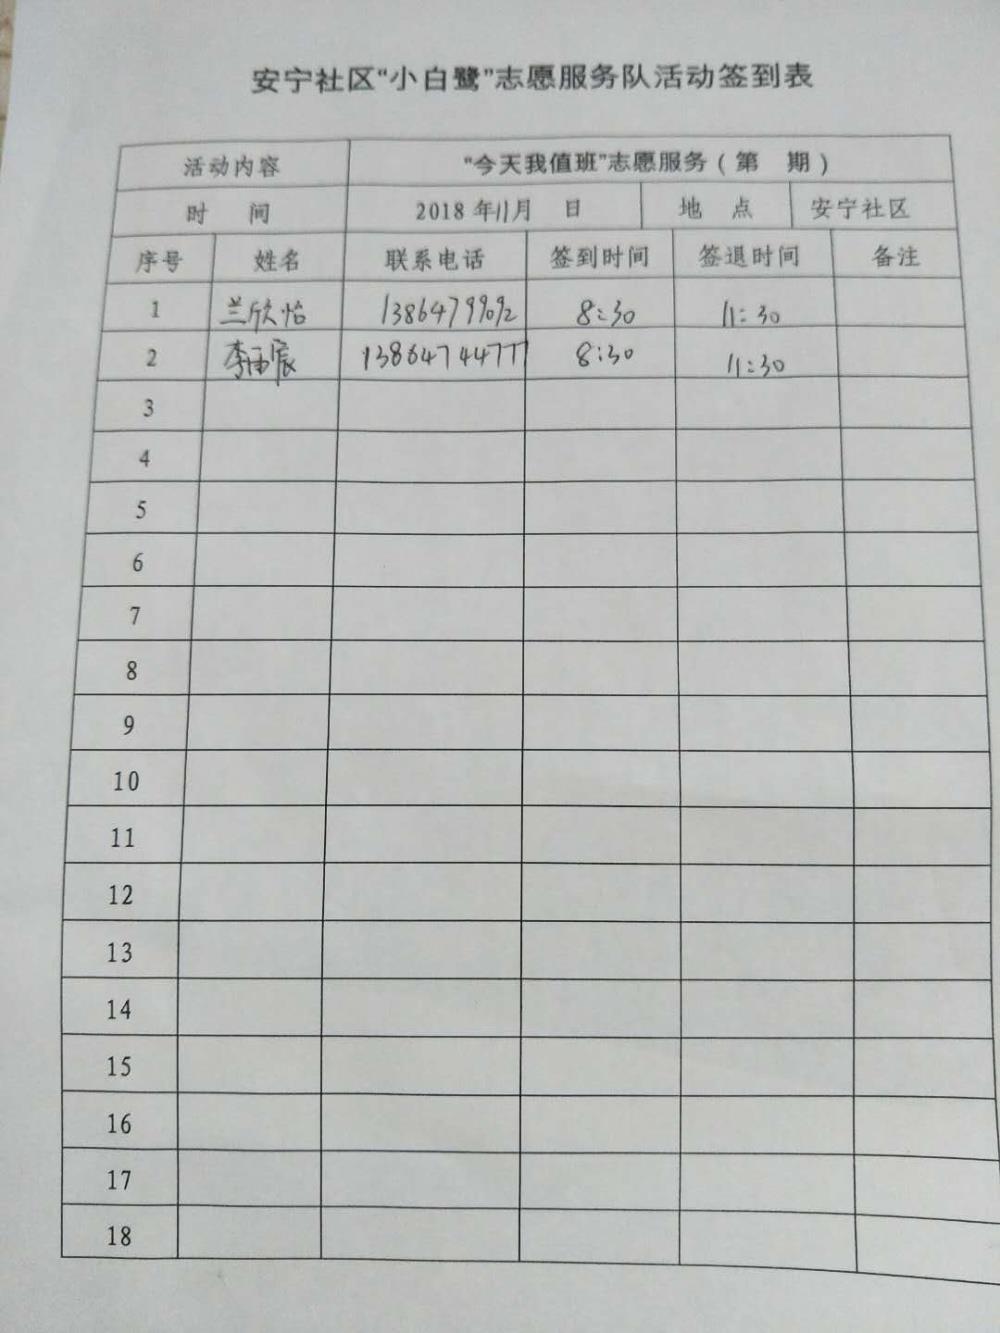 安宁社区“小白鹭”志愿服务队活动签到表
活动内容 “今天我值班”志愿服务（第 期）
时 间 2018年11月 日 地 点 安宁社区
序号 姓名 联系电话 签到时间 签退时间 备注
1 兰欣怡 8:30 11:30
2 13864744777 8:30 11:30
3
4
5
6
7
8
9
10
11
12
13
14
15
16
17
18